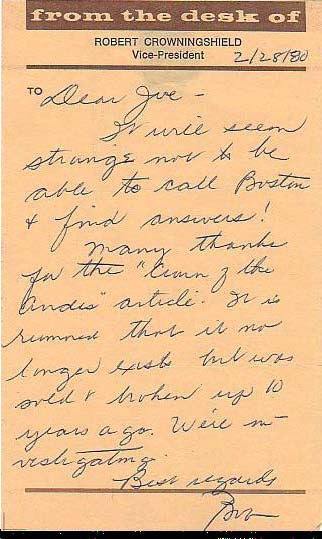 from the desk of
ROBERT CROWNINGSHIELD
Vice-President
2/28/80
TO Dear Joe -
It will seem
strange not to be
able to call Boston
& find answers!
Many thanks
for the "Crown of the
Andes" article. It is
rumored that it no
longer exists but was
sold & broken up 10
years ago. We're in-
vestigating.
Best regards
Bob